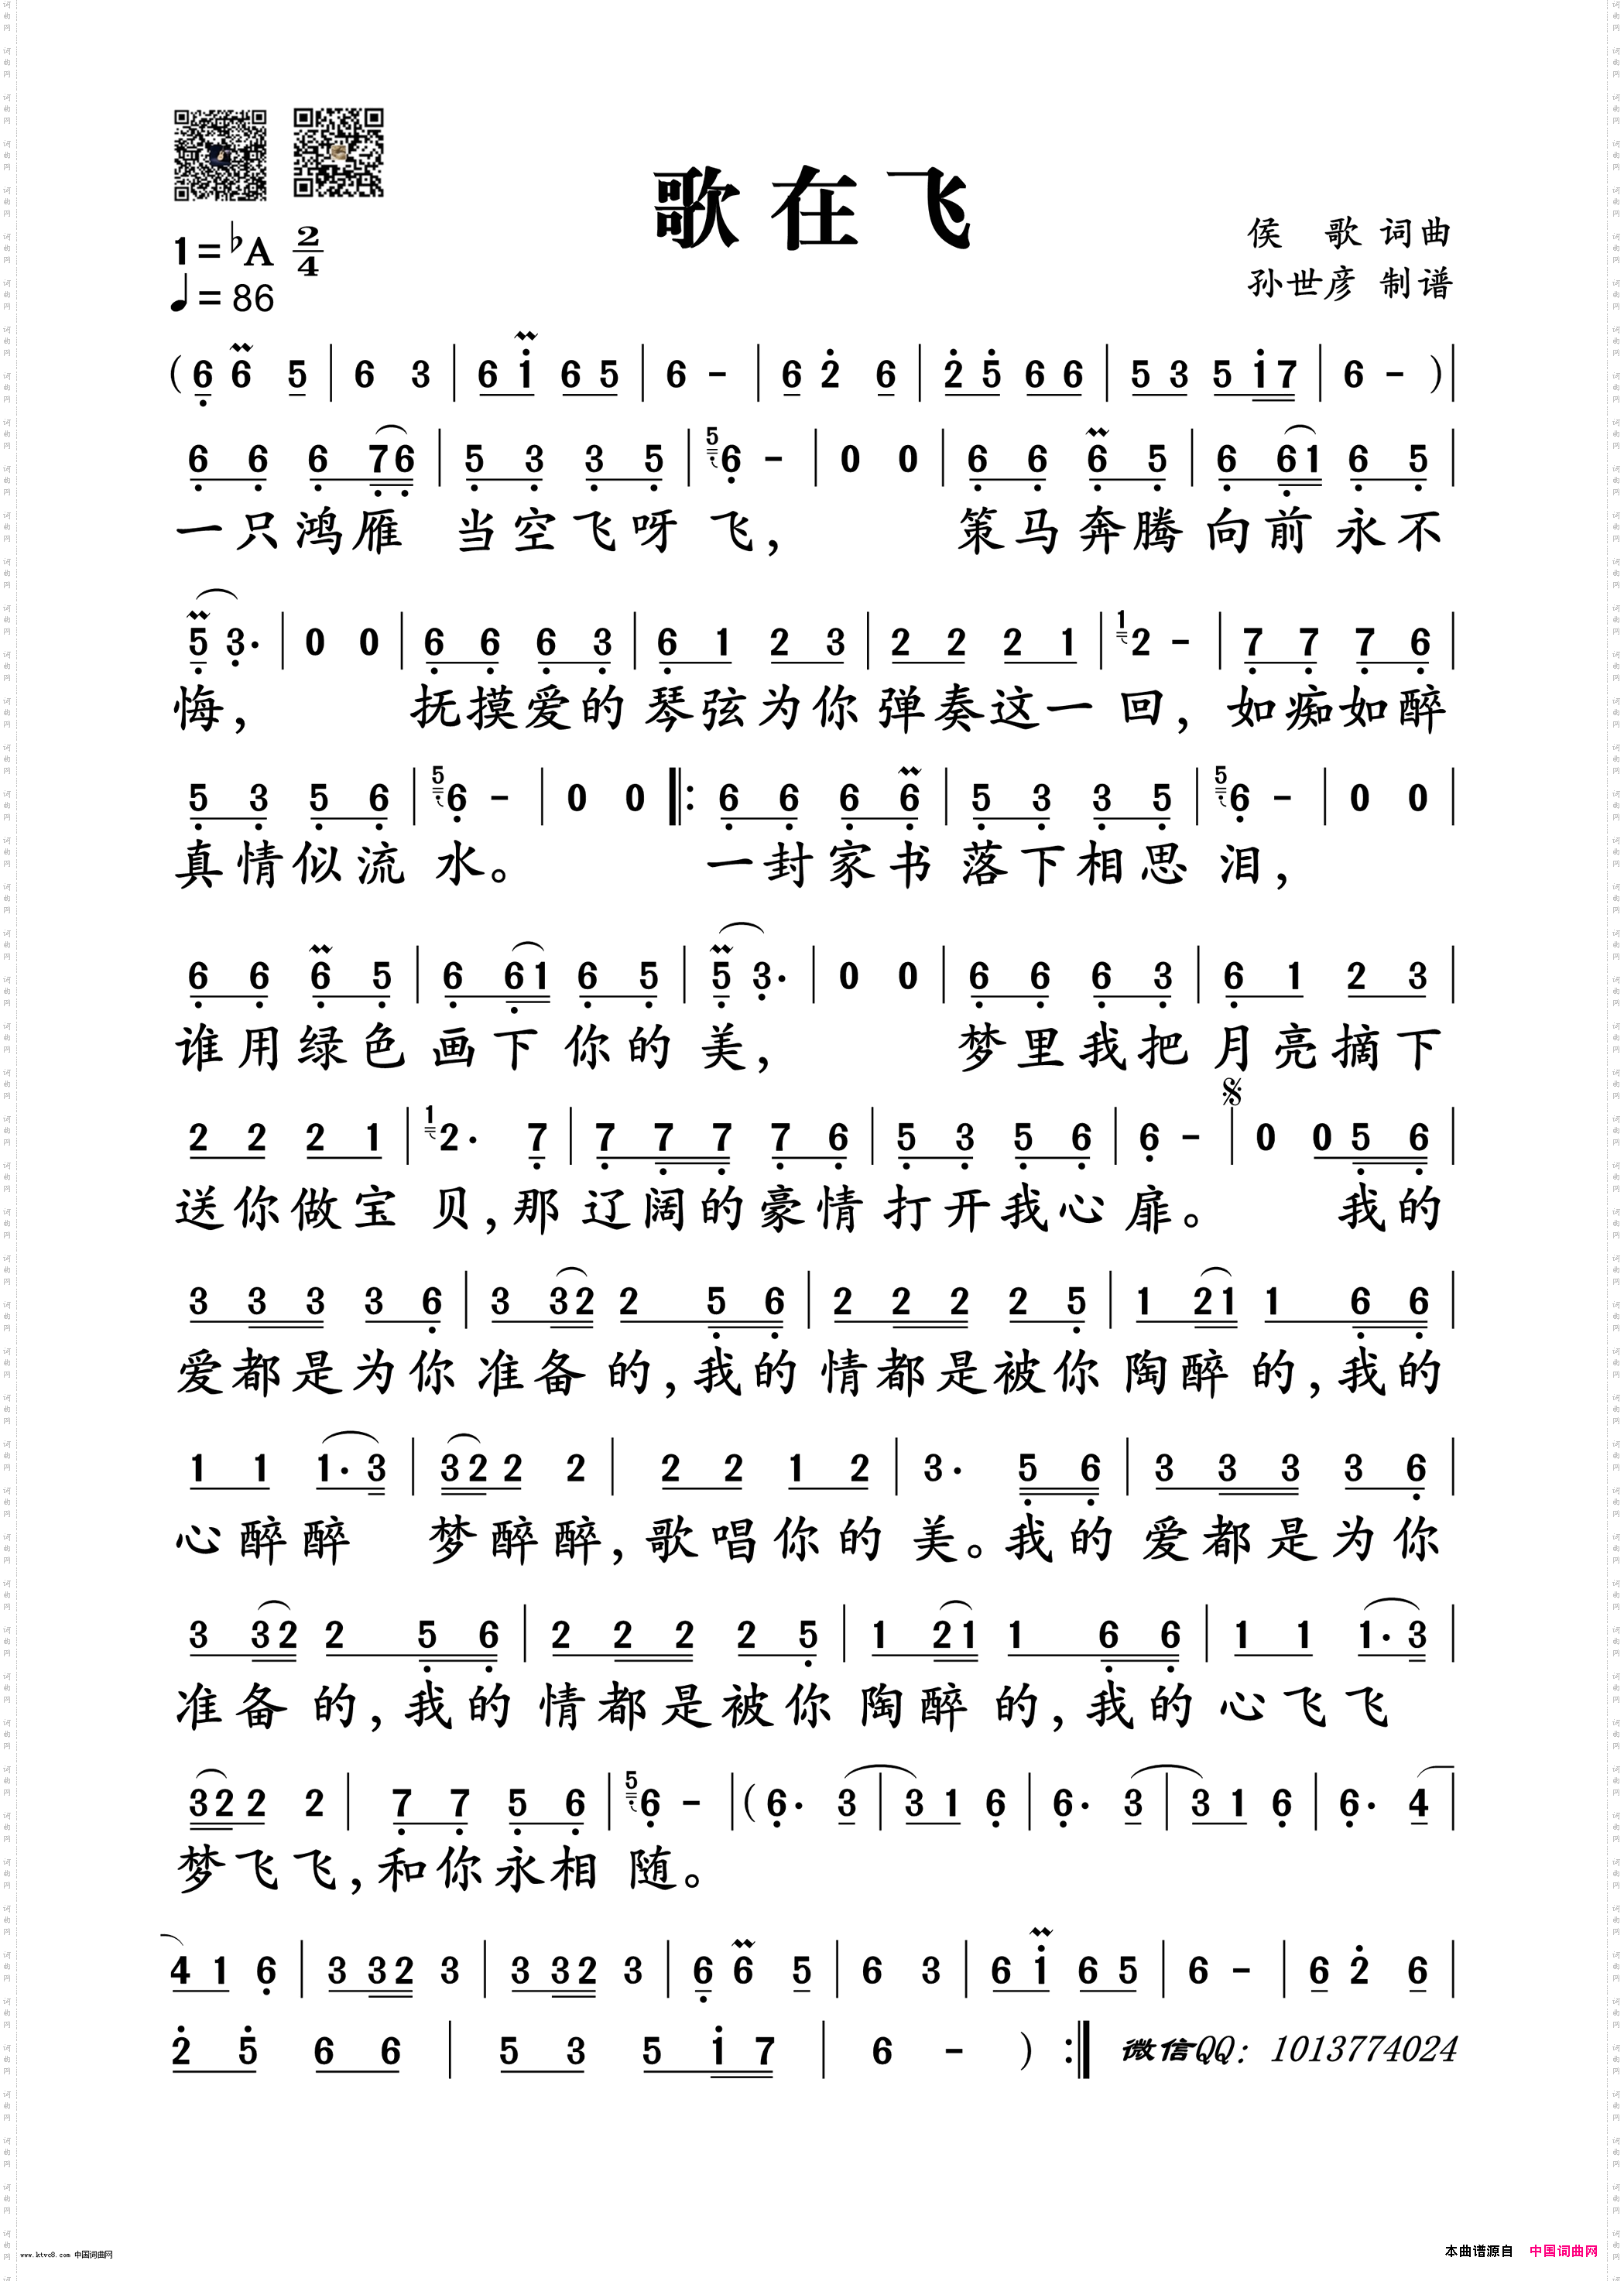 歌在飞
1=♭A 2/4
♩= 86
侯 歌 词曲
孙世彦 制谱
( 6̣ 6 5 | 6 3 | 6 1̇ 6 5 | 6 - | 6 2̇ 6 | 2̇ 5̇ 6 6 | 5 3 5 1̇ 7 | 6 - ) |
6̣ 6̣ 6̣ 7̣ 6̣ | 5̣ 3̣ 3̣ 5̣ | 5 6̣ - | 0 0 | 6̣ 6̣ 6̣ 5̣ | 6̣ 6̣ 1 6̣ 5̣ |
一只鸿雁 当空飞呀飞, 策马奔腾向前永不
5̣ 3̣· | 0 0 | 6̣ 6̣ 6̣ 3̣ | 6̣ 1 2 3 | 2 2 2 1 | 1 2 - | 7̣ 7̣ 7̣ 6̣ |
悔, 抚摸爱的琴弦为你弹奏这一回, 如痴如醉
5̣ 3̣ 5̣ 6̣ | 5 6̣ - | 0 0 |: 6̣ 6̣ 6̣ 6̣ | 5̣ 3̣ 3̣ 5̣ | 5 6̣ - | 0 0 |
真情似流水。 一封家书落下相思泪,
6̣ 6̣ 6̣ 5̣ | 6̣ 6̣ 1 6̣ 5̣ | 5̣ 3̣· | 0 0 | 6̣ 6̣ 6̣ 3̣ | 6̣ 1 2 3 |
谁用绿色画下你的美, 梦里我把月亮摘下
2 2 2 1 | 1 2· 7̣ | 7̣ 7̣ 7̣ 7̣ 6̣ | 5̣ 3̣ 5̣ 6̣ | 6̣ - | 0 0 5̣ 6̣ |
送你做宝贝,那辽阔的豪情打开我心扉。 我的
3 3 3 3 6̣ | 3 3 2 2 5̣ 6̣ | 2 2 2 2 5̣ | 1 2 1 1 6̣ 6̣ |
爱都是为你准备的,我的情都是被你陶醉的,我的
1 1 1· 3 | 3 2 2 2 | 2 2 1 2 | 3· 5̣ 6̣ | 3 3 3 3 6̣ |
心醉醉 梦醉醉,歌唱你的美。我的爱都是为你
3 3 2 2 5̣ 6̣ | 2 2 2 2 5̣ | 1 2 1 1 6̣ 6̣ | 1 1 1· 3 |
准备的,我的情都是被你陶醉的,我的心飞飞
3 2 2 2 | 7̣ 7̣ 5̣ 6̣ | 5 6̣ - | ( 6̣· 3 | 3 1 6̣ | 6̣· 3 | 3 1 6̣ | 6̣· 4 |
梦飞飞,和你永相随。
4 1 6̣ | 3 3 2 3 | 3 3 2 3 | 6̣ 6 5 | 6 3 | 6 1̇ 6 5 | 6 - | 6 2̇ 6 |
2̇ 5̇ 6 6 | 5 3 5 1̇ 7 | 6 - ) :| 微信QQ: 1013774024
www.ktvc8.com 中国词曲网
本曲谱源自 中国词曲网